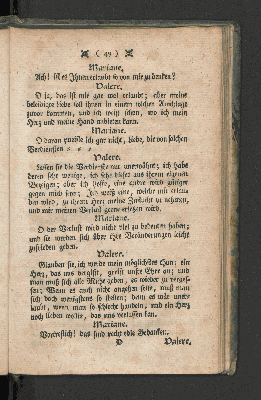 ( 49 )
Mariane.
Ach! ist es Ihnen erlaubt so von mir zu denken?
Valere.
O ja, das ist mir gar wol erlaubt; aber meine
beleidigte Liebe soll ihnen in einem solchen Anschlage
zuvor kommen, und ich weiß schon, wo ich mein
Herz und meine Hand anbieten kann.
Mariane.
O daran zweifle ich gar nicht; Liebe, die von solchen
Verdiensten = = =
Valere.
Lassen sie die Verdienste nur unerwähnt; ich habe
deren sehr wenige, ich sehe dieses aus ihrem eigenen
Bezeigen; aber ich hoffe, eine andre wird gütiger
gegen mich seyn; Ich weiß eine, welche mir erlau-
ben wird, zu ihrem Herz meine Zuflucht zu nehmen,
und mir meinen Verlust gerne ersetzen wird.
Mariane.
O der Verlust wird nicht viel zu bedeuten haben;
und sie werden sich über ihre Veränderungen leicht
zufrieden geben.
Valere.
Glauben sie, ich werde mein möglichstes thun; ein
Herz, das uns vergißt, greift unsre Ehre an; und
man muß sich alle Mühe geben, es wieder zu verges-
sen; Wenn es auch nicht angehen sollte, muß man
sich doch wenigstens so stellen; denn es wär uner-
laubt, wenn man so schlecht handeln, und ein Herz
noch lieben wollte, das uns verlassen kan.
Mariane.
Vortreflich! das sind recht edle Gedanken.
D Valere.